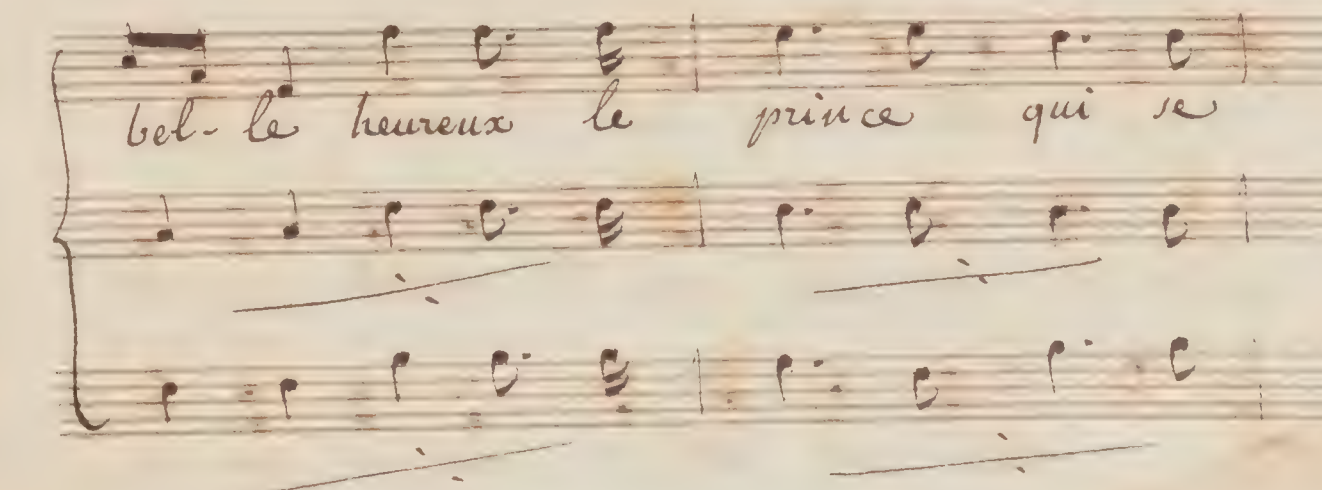 bel- le heureux le prince qui se